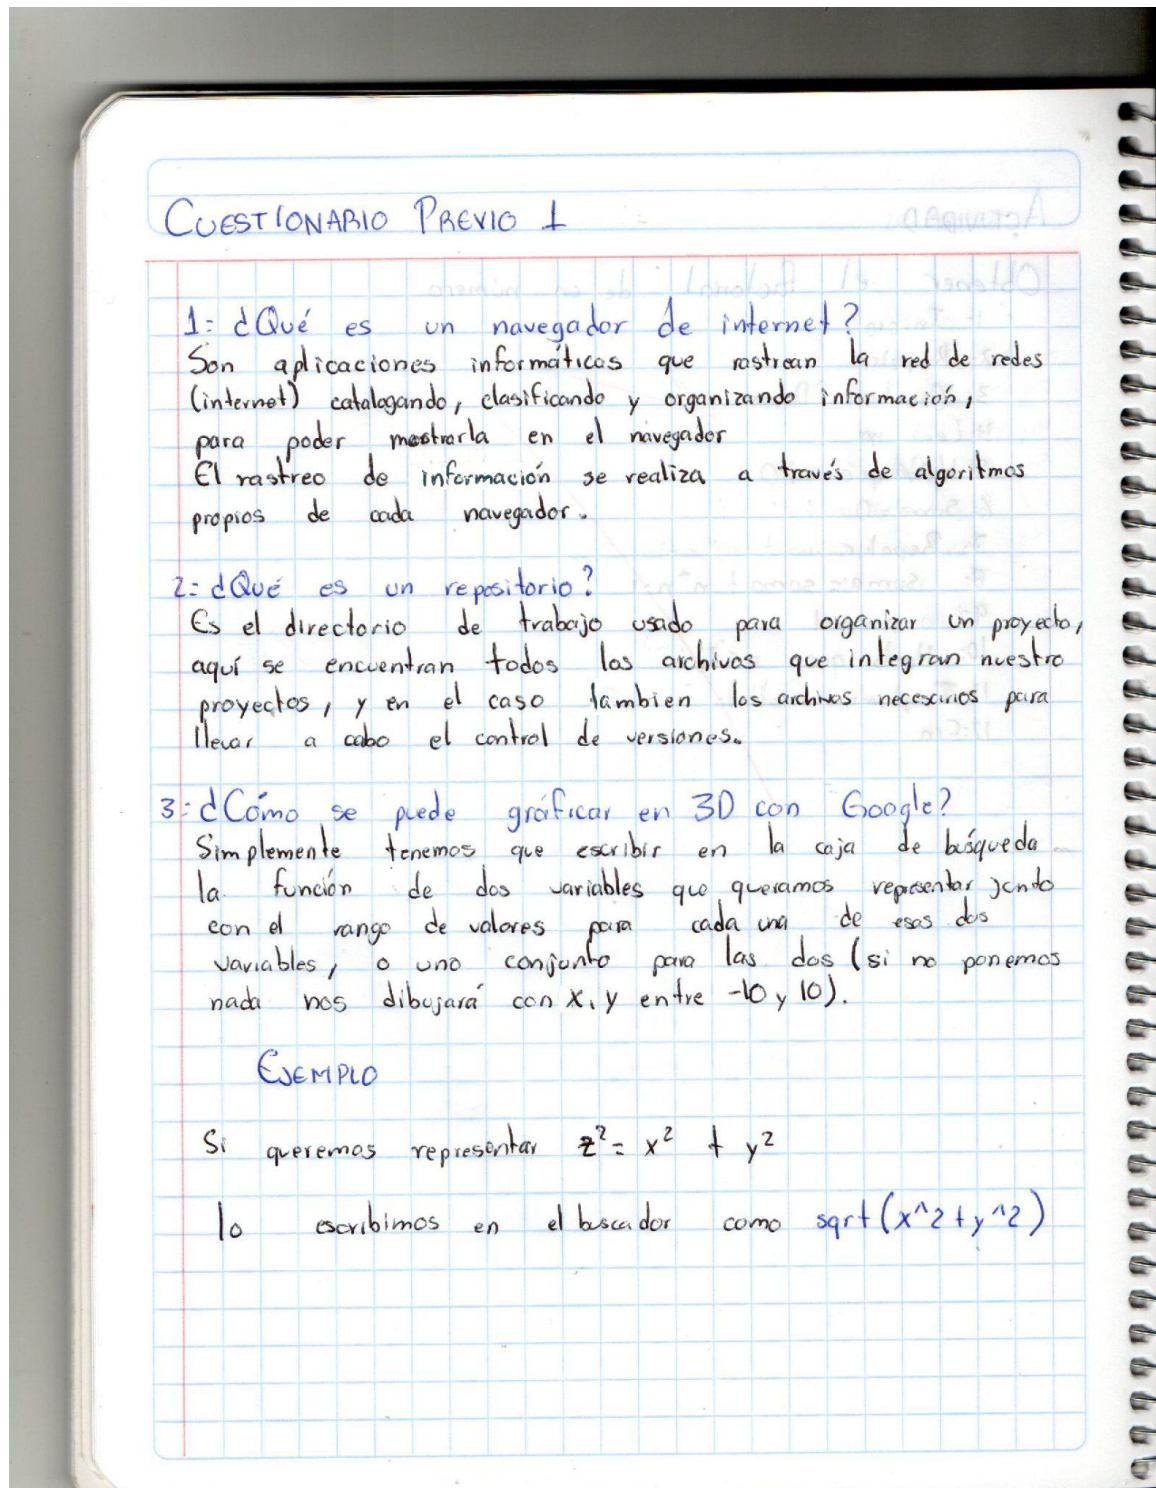 CUESTIONARIO PREVIO 1
1: ¿Qué es un navegador de internet?
Son aplicaciones informáticas que rastrean la red de redes
(internet) catalogando, clasificando y organizando información,
para poder mostrarla en el navegador
El rastreo de información se realiza a través de algoritmos
propios de cada navegador.
2: ¿Qué es un repositorio?
Es el directorio de trabajo usado para organizar un proyecto,
aquí se encuentran todos los archivos que integran nuestro
proyectos, y en el caso tambien los archivos necesarios para
llevar a cabo el control de versiones.
3: ¿Cómo se puede gráficar en 3D con Google?
Simplemente tenemos que escribir en la caja de búsqueda
la función de dos variables que queramos representar junto
con el rango de valores para cada una de esas dos
variables, o uno conjunto para las dos (si no ponemos
nada nos dibujará con x, y entre -10 y 10).
EJEMPLO
Si queremos representar z² = x² + y²
lo escribimos en el buscador como sqrt(x^2+y^2)